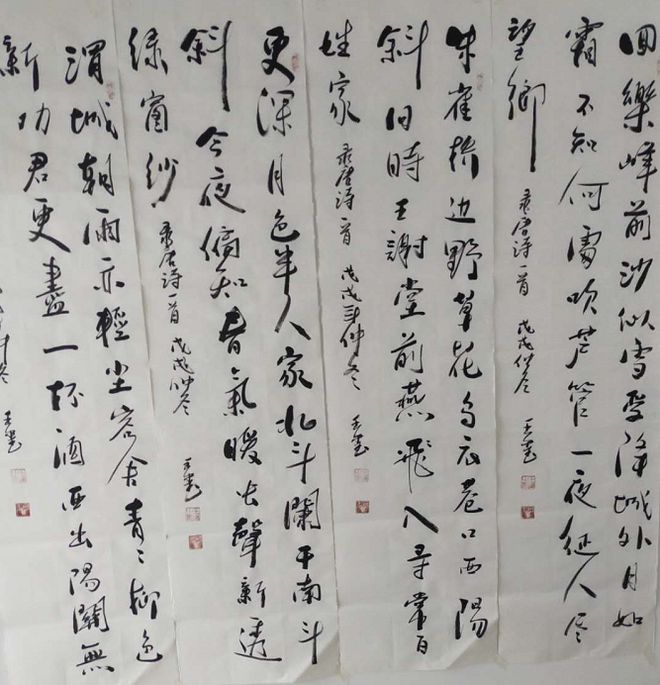 回樂峰前沙似雪受降城外月如
霜不知何處吹芦管一夜征人尽
望鄉 录唐诗一首 戊戌仲冬 王
朱雀橋边野草花乌衣巷口西陽
斜旧時王謝堂前燕飛入寻常百
姓家 录唐诗一首 戊戌年仲冬 王
更深月色半人家北斗闌干南斗
斜今夜偏知春氣暖虫聲新透
绿窗纱 录唐诗一首 戊戌仲冬 王
渭城朝雨亦輕尘客舍青々柳色
新功君更盡一杯酒西出陽關無
仲冬 王